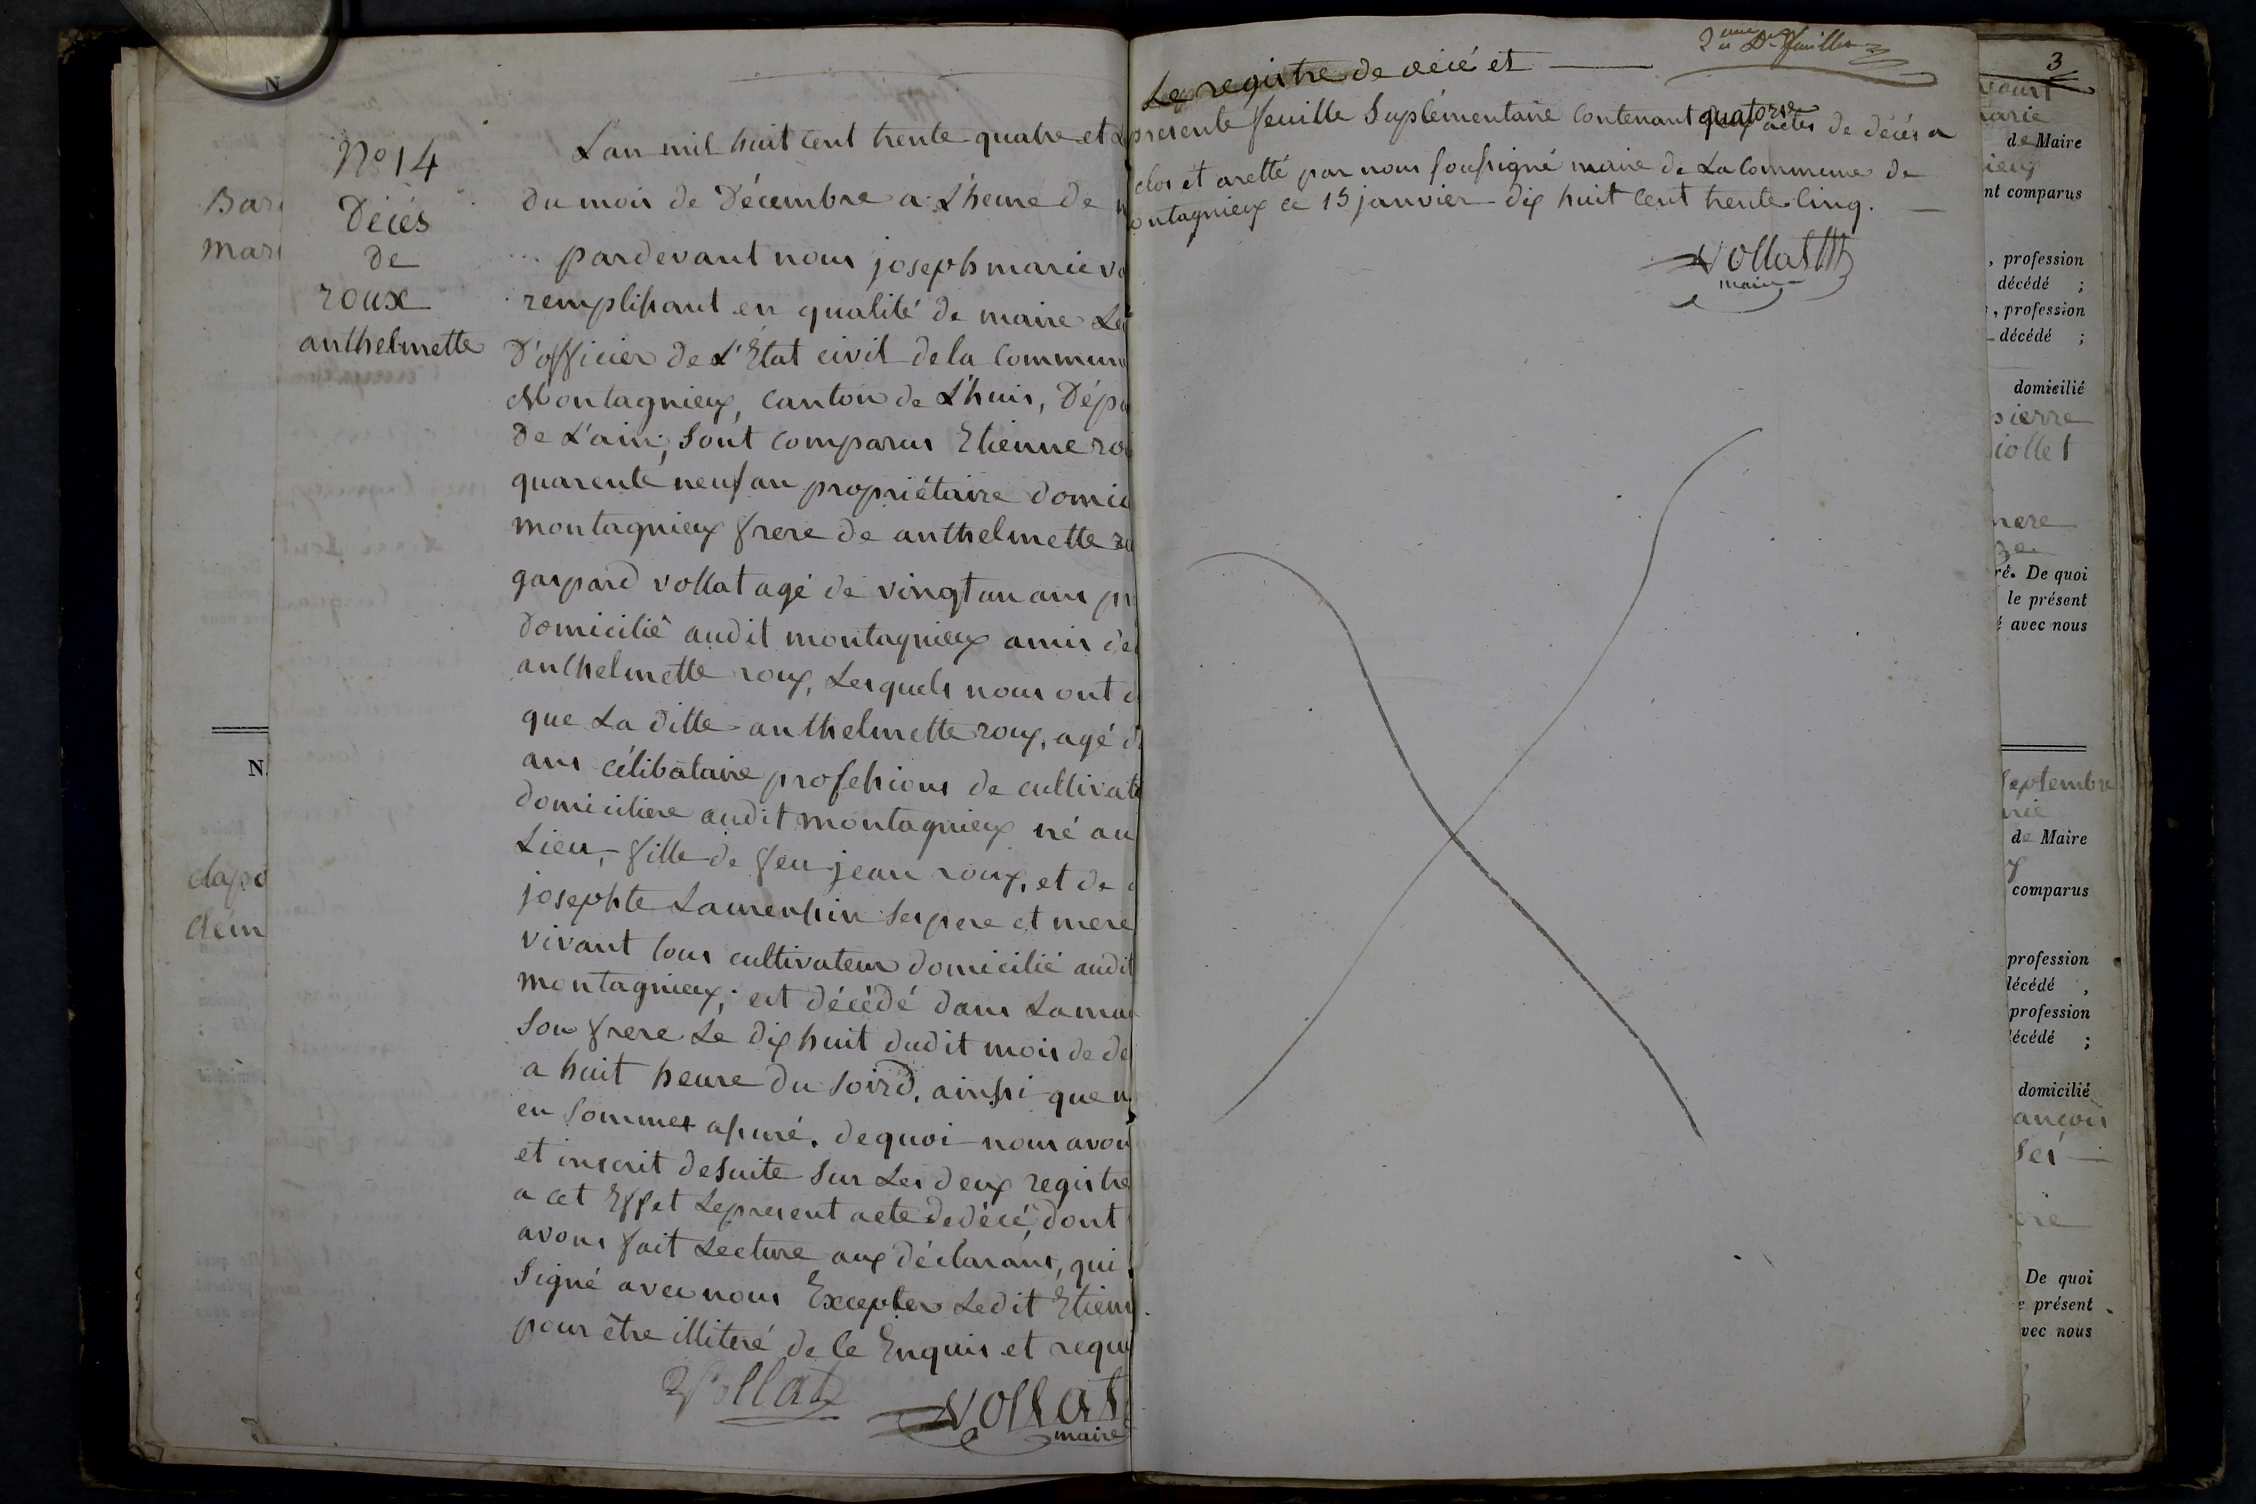 N
Bar
Mar
N
clapo
clém
Nº 14
Décès
de
roux
anthelmette
L'an mil huit cent trente-quatre et
Du mois de Décembre a L'heure de
pardevant nous joseph marie vo
remplissant en qualité de maire Le
D'officier de L'Etat civil de la Commun
Montagnieux, Canton de L'huis, Dépa
de L'ain, sont comparus Etienne ro
quarente neuf an propriétaire domici
montagnieux frere de anthelmette ro
gaspard vollat agé de vingt un ans pr
Domicilié audit montagnieux amis de
anthelmette roux, Lesquels nous ont d
que La ditte anthelmette roux, agé d
ans célibataire professions de cultivat
domiciliere audit montagnieux né au
Lieu, fille de feu jean roux, et de
josephte Laurensin ses pere et mere
vivant tous cultivateur domicilié audit
montagnieux, est décédé dans La mai
Son frere Le dix huit dudit mois de de
a huit heure du soird, ainssi que n
en sommes assuré. de quoi nous avon
et inscrit desuite sur Les deux registre
a cet Effet Le present acte de décé, dont
avons fait Lecture aux déclarans, qui
Signé avec nous Excepter Ledit Etienn
pour être illiteré de le Enquis et requi
Vollat
Vollat
maire
2eme De feuille
Le registre de décé et
presente feuille Suplémentaire contenant quatorze actes de décés a
clos et aretté par nous soussigné maire de La Commune de
ontagnieux ce 15 janvier dix huit cent trente cinq.
Vollat
maire
3
court
arie
de Maire
ieux
nt comparus
, profession
décédé ;
, profession
décédé ;
domicilié
pierre
iollet
mere
ré. De quoi
le présent
é avec nous
septembre
rie
de Maire
comparus
profession
décédé ,
profession
décédé ;
domicilié
ançois
De quoi
e présent
vec nous